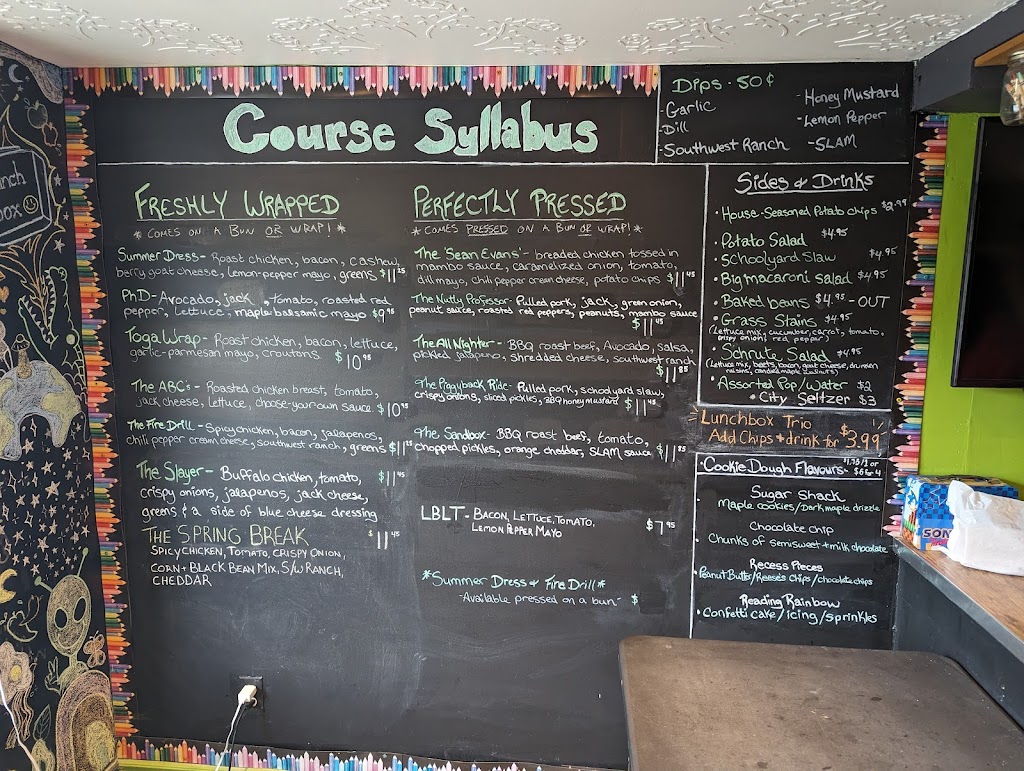 Course Syllabus
Dips - 50¢
- Garlic
- Dill
- Southwest Ranch
- Honey Mustard
- Lemon Pepper
- SLAM
FRESHLY WRAPPED
* COMES ON A BUN OR WRAP! *
Summer Dress - Roast chicken, bacon, cashew,
berry goat cheese, lemon-pepper mayo, greens $11
PhD - Avocado, jack, tomato, roasted red
pepper, lettuce, maple balsamic mayo $9.95
Toga Wrap - Roast chicken, bacon, lettuce,
garlic-parmesan mayo, croutons $10.95
The ABC's - Roasted chicken breast, tomato,
jack cheese, lettuce, choose-your own sauce $10.95
The Fire Drill - Spicy chicken, bacon, jalapenos,
chili pepper cream cheese, southwest ranch, greens $11
The Slayer - Buffalo chicken, tomato, $11.45
crispy onions, jalapenos, jack cheese,
greens & a side of blue cheese dressing
THE SPRING BREAK $11.45
SPICY CHICKEN, TOMATO, CRISPY ONION,
CORN + BLACK BEAN MIX, S/W RANCH,
CHEDDAR
PERFECTLY PRESSED
* COMES PRESSED ON A BUN OR WRAP! *
The 'Sean Evans' - breaded chicken tossed in
mambo sauce, caramelized onion, tomato,
dill mayo, chili pepper cream cheese, potato chips $11.45
The Nutty Professor - Pulled pork, jack, green onion,
peanut sauce, roasted red peppers, peanuts, mambo sauce
$11.45
The All Nighter - BBQ roast beef, Avocado, salsa,
pickled jalapeno, shredded cheese, southwest ranch
$11.85
The Piggyback Ride - Pulled pork, schoolyard slaw,
crispy onions, sliced pickles, BBQ honey mustard $11.45
The Sandbox - BBQ roast beef, tomato,
chopped pickles, orange cheddar, SLAM sauce $11.85
LBLT - BACON, LETTUCE, TOMATO,
LEMON PEPPER MAYO $7.95
*Summer Dress & Fire Drill*
-Available pressed on a bun- $
Sides & Drinks
• House-Seasoned Potato chips $2.99
• Potato Salad $4.95
• Schoolyard Slaw $4.95
• Big macaroni salad $4.95
• Baked beans $4.95 - OUT
• Grass Stains $4.95
(Lettuce mix, cucumber, carrot, tomato,
crispy onion, red pepper)
• Schrute Salad $4.95
(Lettuce mix, beets, bacon, goat cheese, drunken
raisins, candied maple walnuts)
• Assorted Pop/Water $2
• City Seltzer $3
Lunchbox Trio
Add Chips + drink for $3.99
• Cookie Dough Flavours - $1.75/1 or
$6 for 4
Sugar Shack
• Maple cookies/Dark maple drizzle
Chocolate Chip
• Chunks of semisweet + milk chocolate
Recess Pieces
• Peanut Butter/Reese's Chips/chocolate chips
Reading Rainbow
• Confetti cake/icing/sprinkles
nch
box
SON